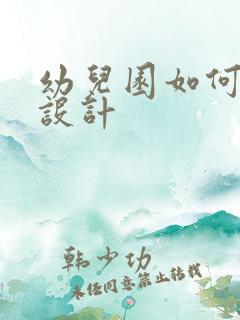 幼兒園如何
設計
韩少功
未经同意禁止转载